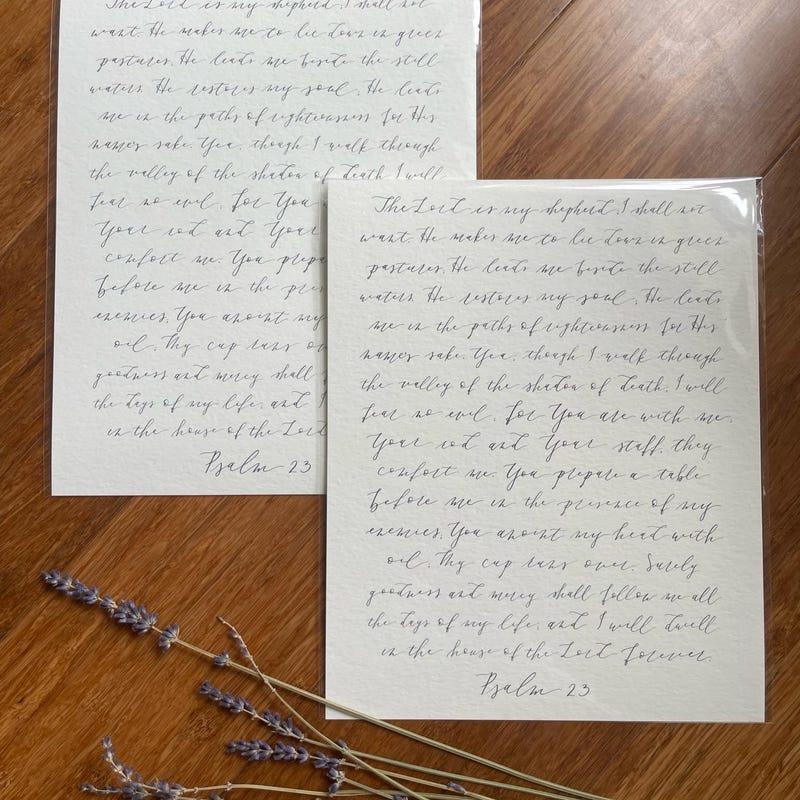 The Lord is my shepherd, I shall not
want. He makes me to lie down in green
pastures. He leads me beside the still
waters. He restores my soul. He leads
me in the paths of righteousness for His
name's sake. Yea, though I walk through
the valley of the shadow of death, I will
fear no evil, for You
Your rod and Your
comfort me. You prepa
before me in the pres
enemies. You anoint my
oil. My cup runs ov
goodness and mercy shall
the days of my life, and I
in the house of the Lord
Psalm 23
The Lord is my shepherd, I shall not
want. He makes me to lie down in green
pastures. He leads me beside the still
waters. He restores my soul. He leads
me in the paths of righteousness for His
name's sake. Yea, though I walk through
the valley of the shadow of death, I will
fear no evil, for You are with me.
Your rod and Your staff, they
comfort me. You prepare a table
before me in the presence of my
enemies. You anoint my head with
oil. My cup runs over. Surely
goodness and mercy shall follow me all
the days of my life, and I will dwell
in the house of the Lord forever.
Psalm 23